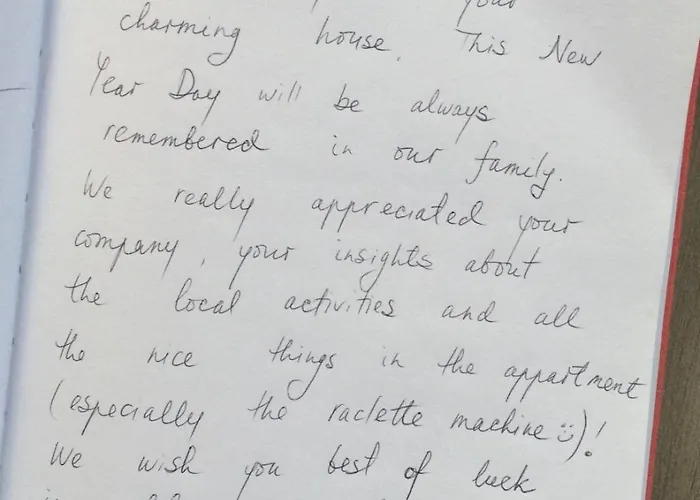 your
charming house. This New
Year Day will be always
remembered in our family.
We really appreciated your
company, your insights about
the local activities and all
the nice things in the appartment
(especially the raclette machine :))!
We wish you best of luck